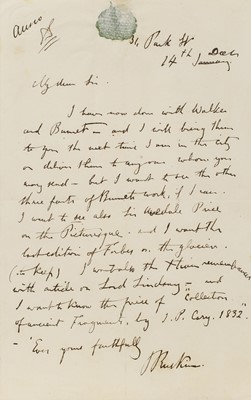 31 Park St
14th January
My dear Sir.
I have now done with Walker
and Burnet – and I will bring them
to you the next time I am in the city
or deliver them to anyone whom you
may send – but I want to see the other
three parts of Burnets work, if I can.
I want to see also Sir Uvedale Price
on the Picturesque. and I want the
last edition of Forbes on the glaciers.
(to keep) I want also the
with article on Lord Lindsay – and
I want to know the price of "Collection
of ancient Fragments. by I. P. Cory. 1832."
– Ever yours faithfully
J Ruskin